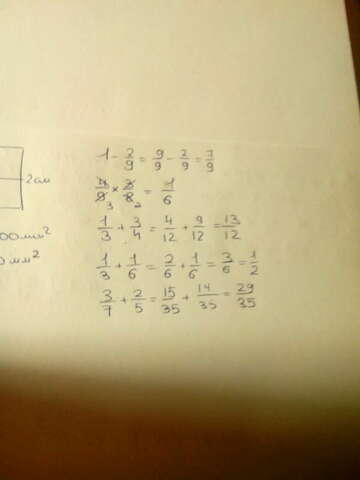 2см
00мм²
0мм²
1 - 2/9 = 9/9 - 2/9 = 7/9
4/9 × 3/8 = 1/6
3 2
1/3 + 3/4 = 4/12 + 9/12 = 13/12
1/3 + 1/6 = 2/6 + 1/6 = 3/6 = 1/2
3/7 + 2/5 = 15/35 + 14/35 = 29/35